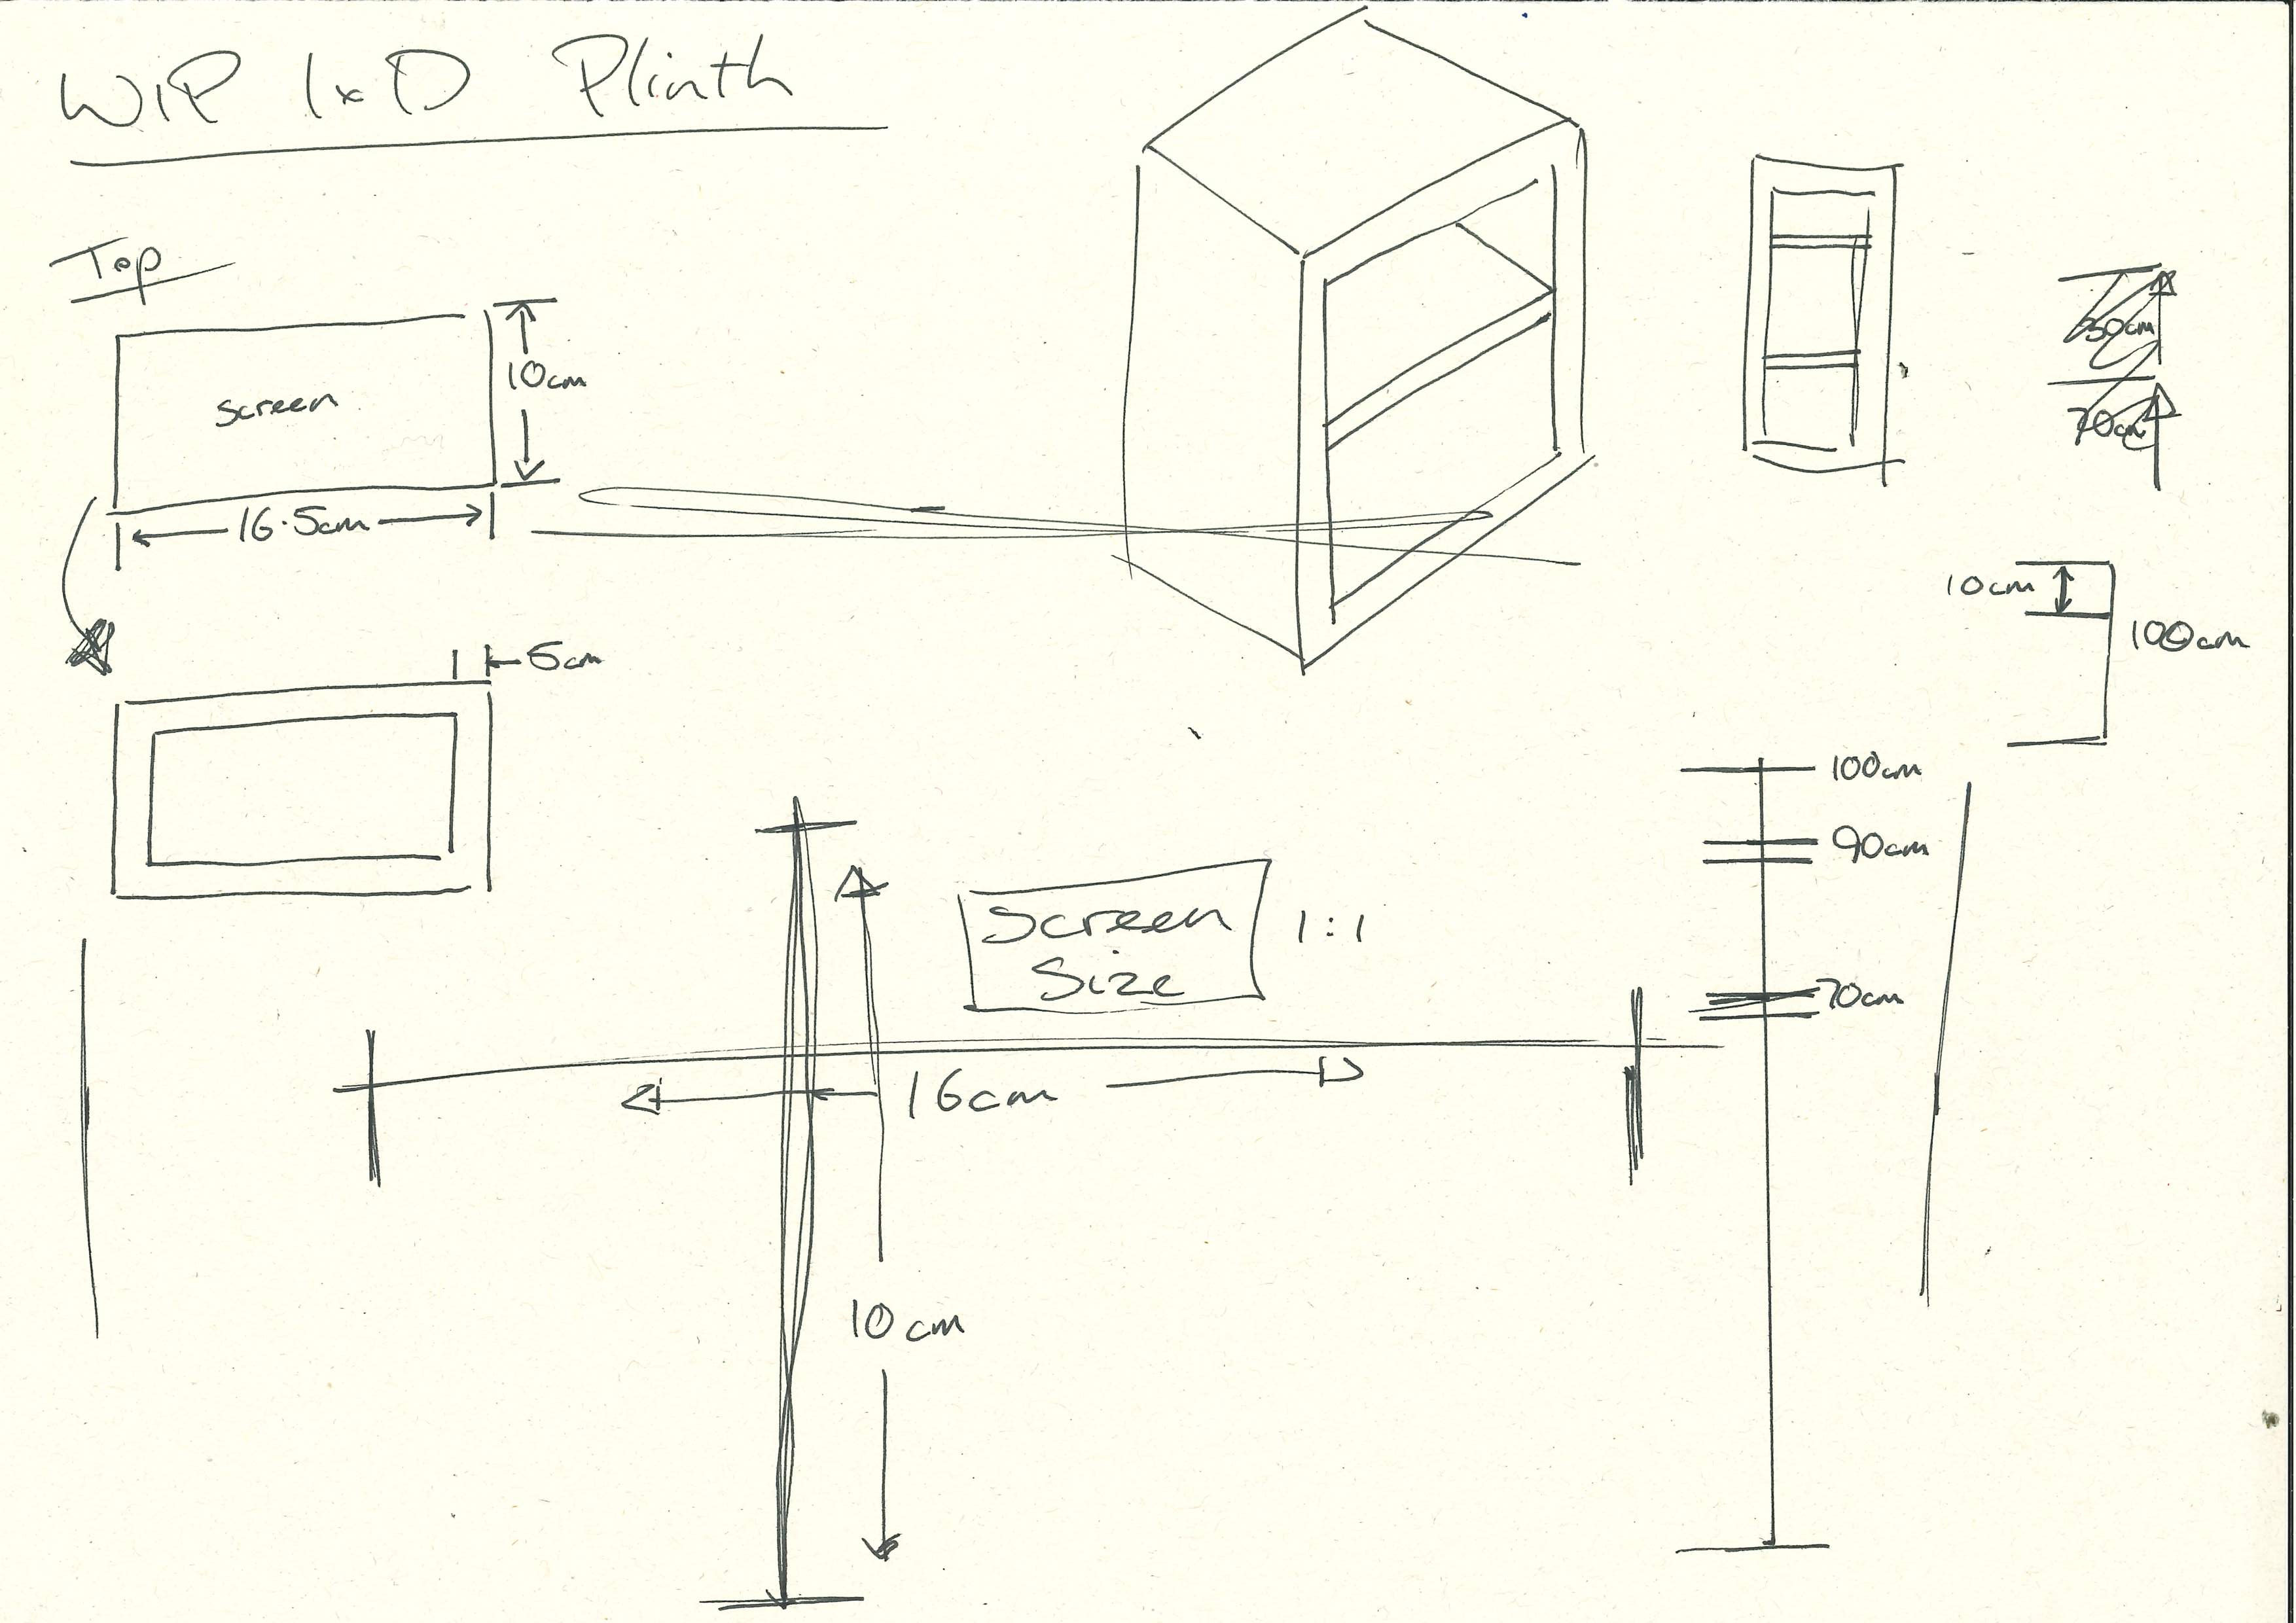 WIP IxD Plinth
Top
screen
10cm
16.5cm
5cm
10cm
100cm
100cm
90cm
70cm
Screen
Size
1:1
16cm
10cm
70cm